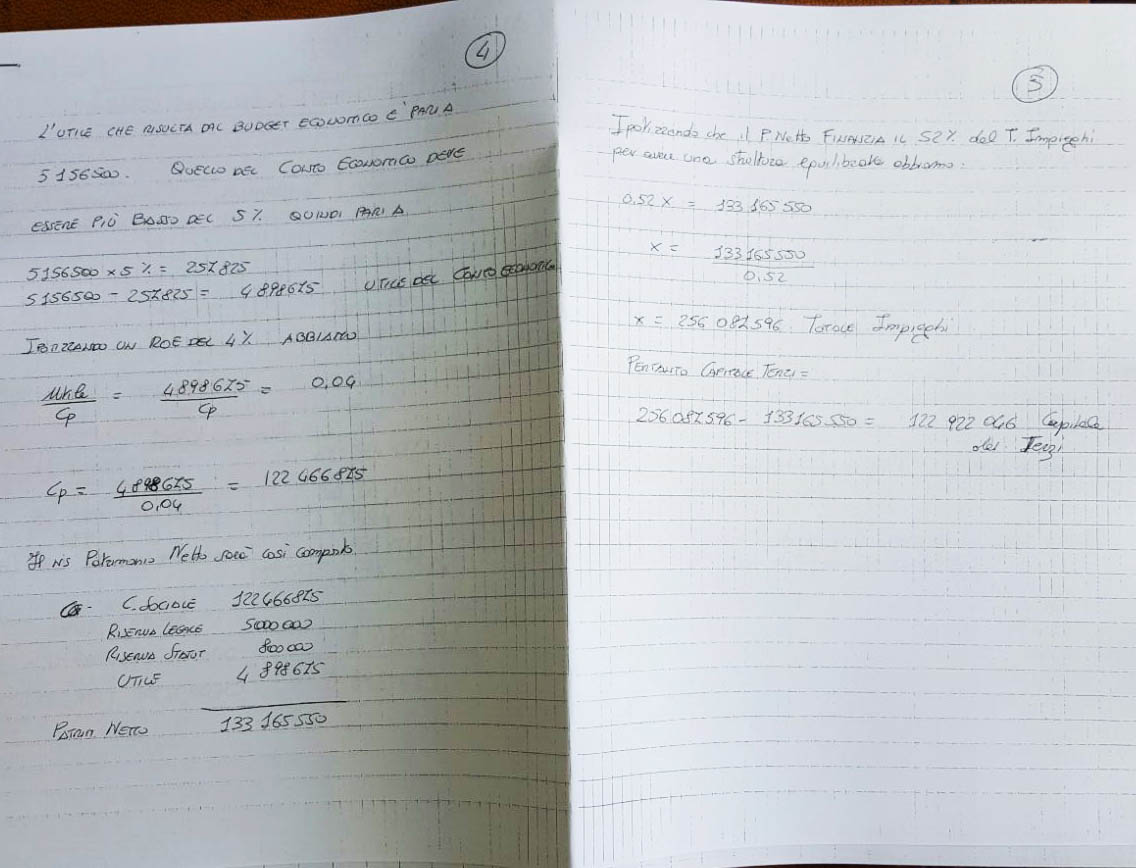 4
L'UTILE CHE RISULTA DAL BUDGET ECONOMICO E' PARI A
5156500. QUELLO DEL CONTO ECONOMICO DEVE
ESSERE PIÙ BASSO DEL 5% QUINDI PARI A
5156500 x 5% = 257825
5156500 - 257825 = 4898675 UTILE DEL CONTO ECONOMICO
IPOTIZZANDO UN ROE DEL 4% ABBIAMO
Utile / Cp = 4898675 / Cp = 0,04
Cp = 4898675 / 0,04 = 122466875
Il NS Patrimonio Netto sarà così composto
C. SOCIALE 122466875
RISERVA LEGALE 5000000
RISERVA STATUT 800000
UTILE 4898675
PATRIM NETTO 133165550
5
Ipotizzando che il P. Netto FINANZIA IL 52% del T. Impieghi
per avere una struttura equilibrata abbiamo:
0,52 x = 133165550
x = 133165550 / 0,52
x = 256087596 Totale Impieghi
PERTANTO CAPITALE TERZI =
256087596 - 133165550 = 122922046 Capitale
dei Terzi